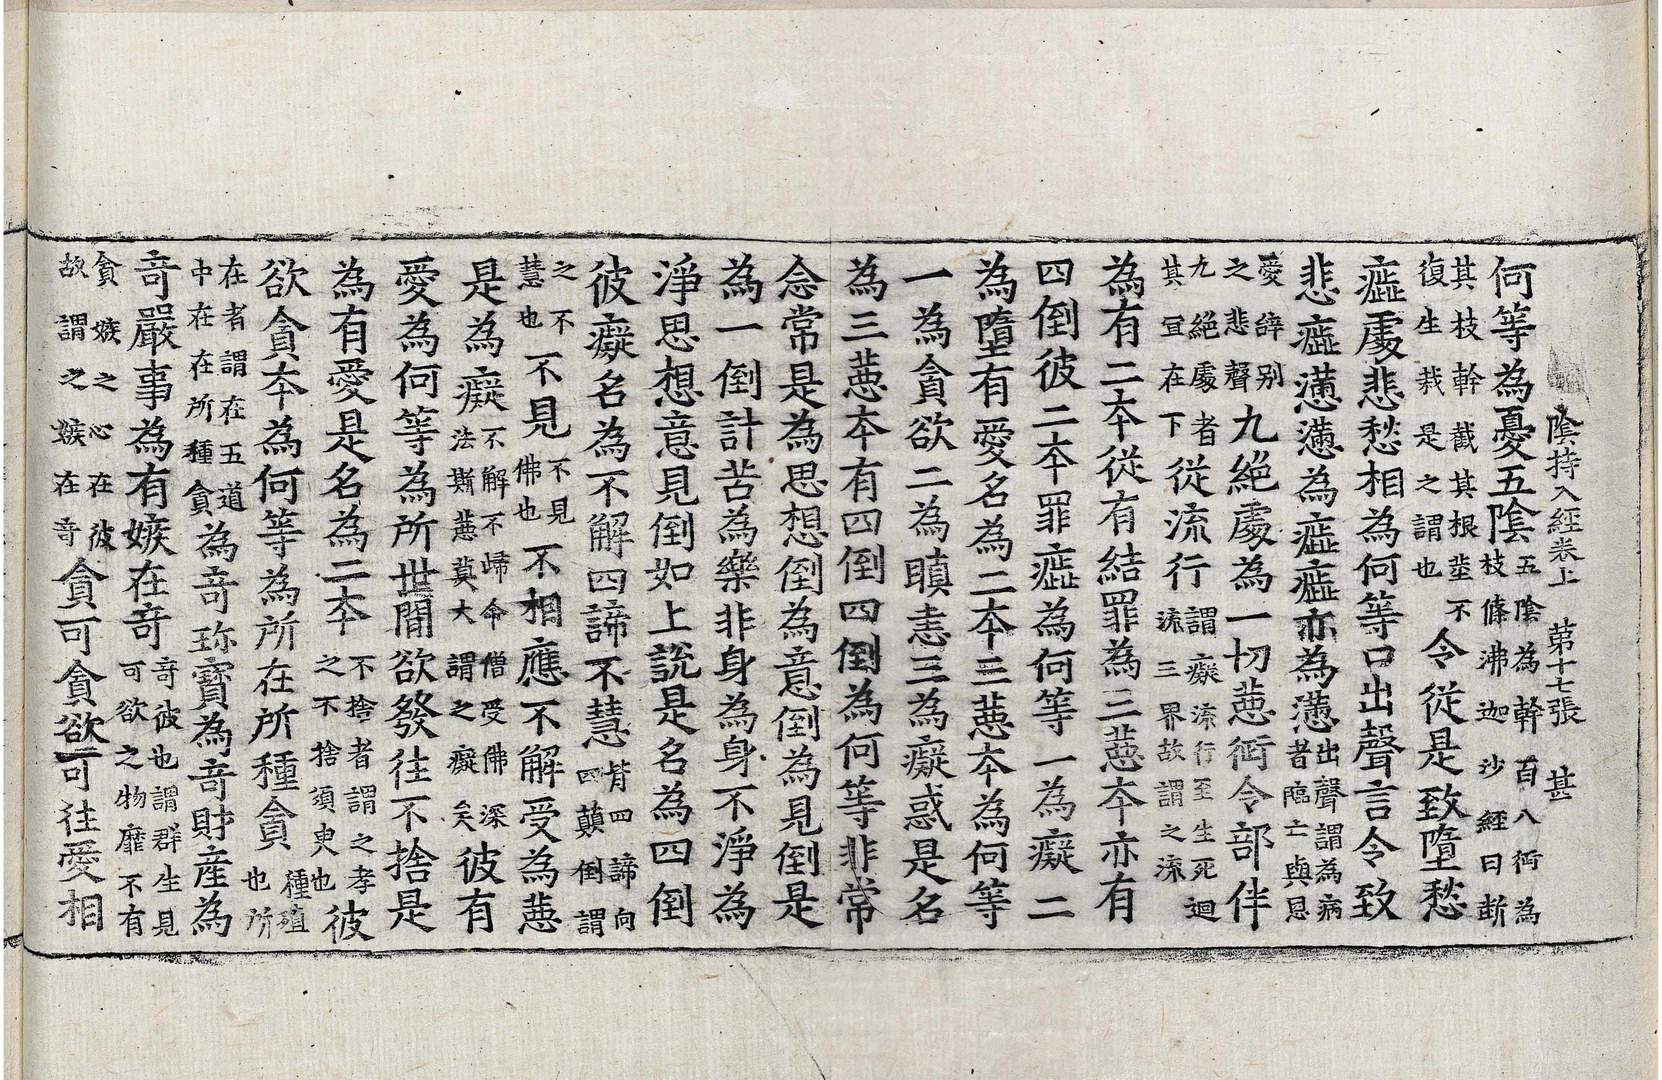 陰持入經卷上 第十七張 甚
何等為憂五陰五陰為幹百八衜為枝條沸迦沙經曰斷
其枝幹截其根莖不復生栽是之謂也令從是致墮愁
處悲愁相為何等口出聲言令致
悲懣懣為亦為懣出聲謂為病者臨亡與恩
愛辝別之悲聲九絕處為一切惡衜令部伴
九絕處者其冝在下從流行謂癡流行至生死迴流三界故謂之流
為有二夲從有結罪為三惡夲亦有
四倒彼二夲罪為何等一為癡二
為墮有愛名為二夲三惡夲為何等
一為貪欲二為瞋恚三為癡惑是名
為三惡夲有四倒四倒為何等非常
念常是為思想倒為意倒為見倒是
為一倒計苦為樂非身為身不淨為
淨思想意見倒如上說是名為四倒
彼癡名為不解四諦不慧背四諦向四顛倒謂
之不慧也不見不見佛也不相應不解受為惡
是為癡不解不歸命僧受佛深法斯惡莫大謂之癡矣彼有
愛為何等為所世間欲發往不捨是
為有愛是名為二夲不捨者謂之孝之不捨須臾也彼
欲貪夲為何等為所在所種貪種殖也所
在者謂在五道中在在所種貪為竒珎寶為竒財產為
竒嚴事為有嫉在竒竒彼也謂群生見可欲之物靡不有
貪嫉之心在彼故謂之嫉在竒貪可貪欲可往愛相